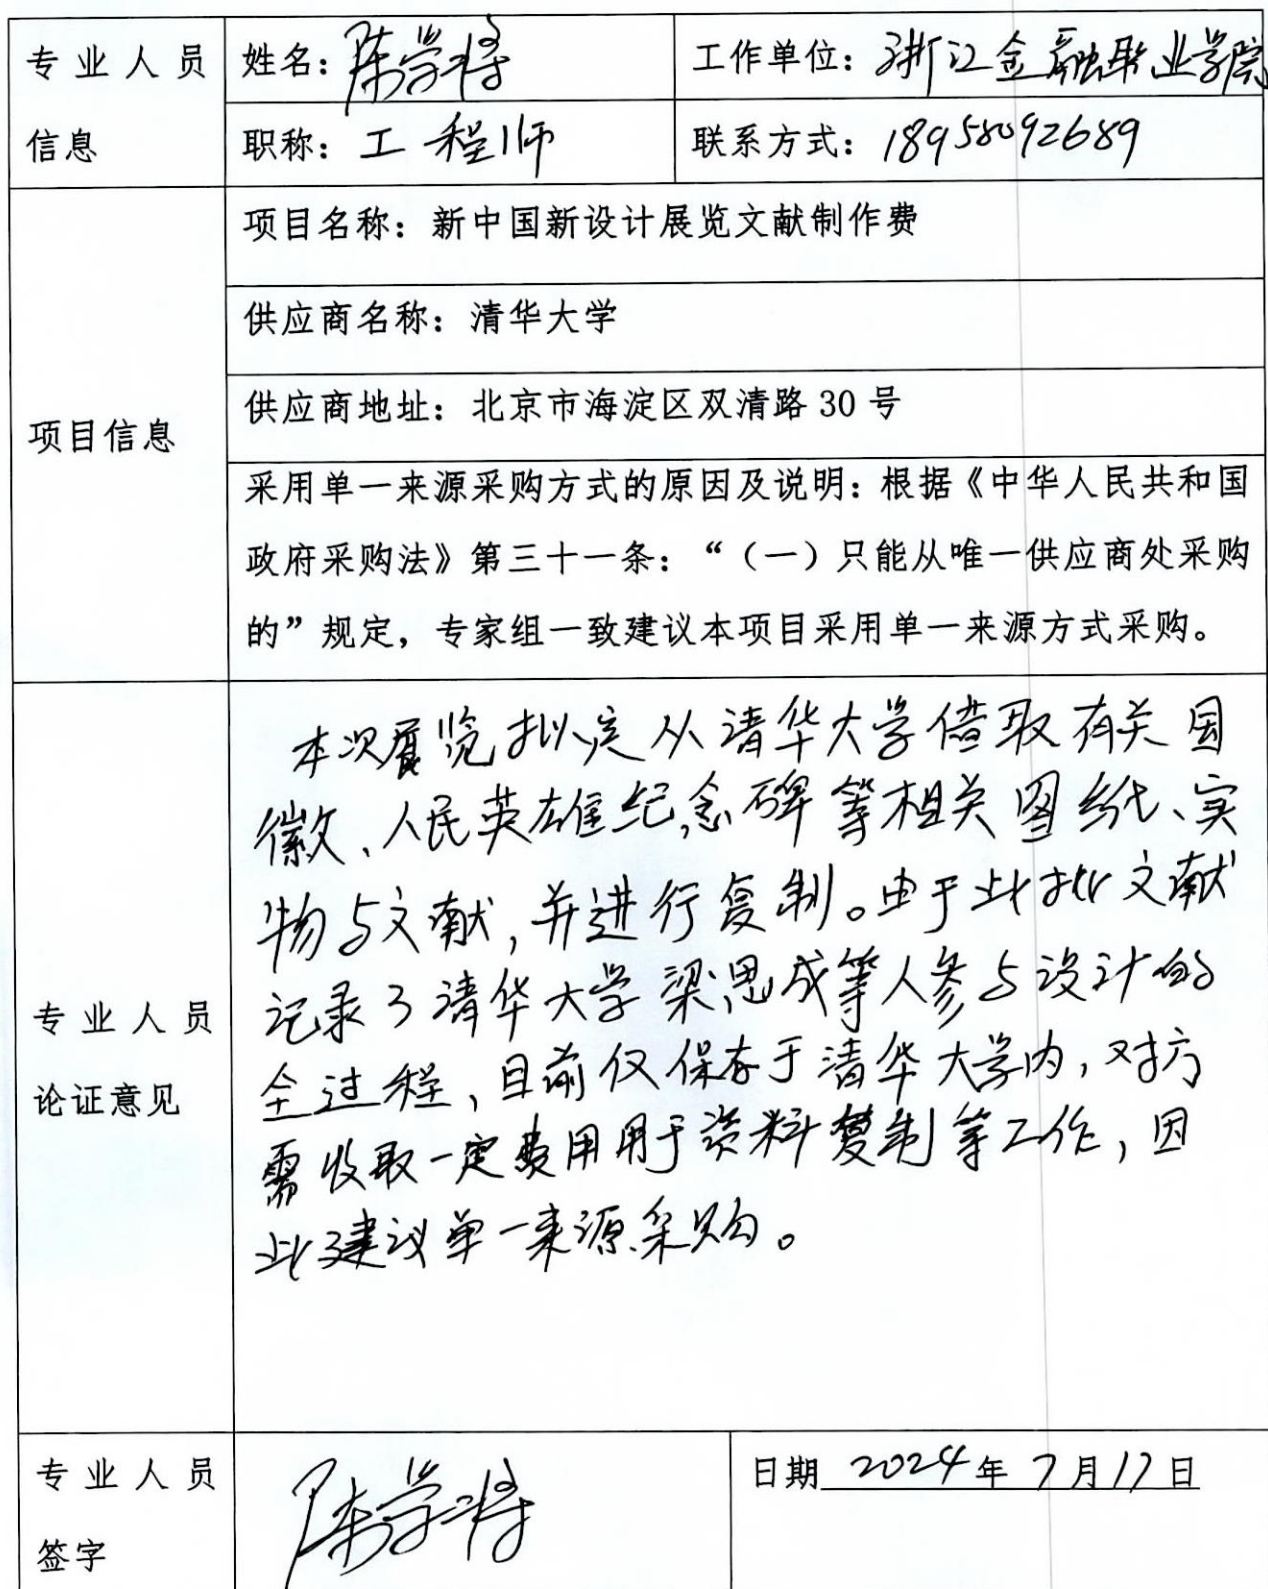 专业人员 姓名：陈学特 工作单位：浙江金融职业学院
信息 职称：工程师 联系方式：18958092689
项目名称：新中国新设计展览文献制作费
供应商名称：清华大学
供应商地址：北京市海淀区双清路 30 号
项目信息
采用单一来源采购方式的原因及说明：根据《中华人民共和国
政府采购法》第三十一条：“（一）只能从唯一供应商处采购
的”规定，专家组一致建议本项目采用单一来源方式采购。
本次展览拟定从清华大学借取有关国
徽、人民英雄纪念碑等相关图纸、实
物与文献，并进行复制。由于此批文献
记录了清华大学梁思成等人参与设计的
专业人员
全过程，目前仅保存于清华大学内，对方
论证意见
需收取一定费用用于资料复制等工作，因
此建议单一来源采购。
专业人员 陈学特 日期 2024年 7月17日
签字